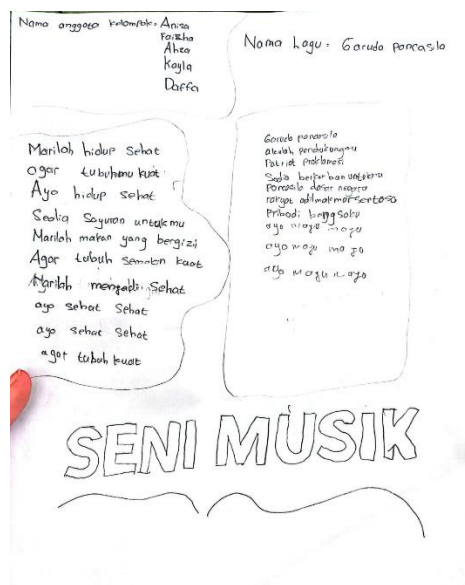 Nama anggota kelompok: Anisa
Faizha
Ahza
Kayla
Daffa
Nama Lagu: Garuda pancasila
Marilah hidup sehat
agar tubuhmu kuat
Ayo hidup sehat
Sedia Sayuran untukmu
Marilah makan yang bergizi
Agar tubuh semakin kuat
Marilah menjadi Sehat
ayo sehat Sehat
ayo sehat Sehat
agar tubuh kuat
Garuda pancasila
akulah pendukungmu
Patriot proklamasi
Sedia berkorban untukmu
Pancasila dasar negara
rakyat adil makmur sentosa
Pribadi bangsaku
ayo maju maju
ayo maju maju
ayo maju maju
SENI MUSIK